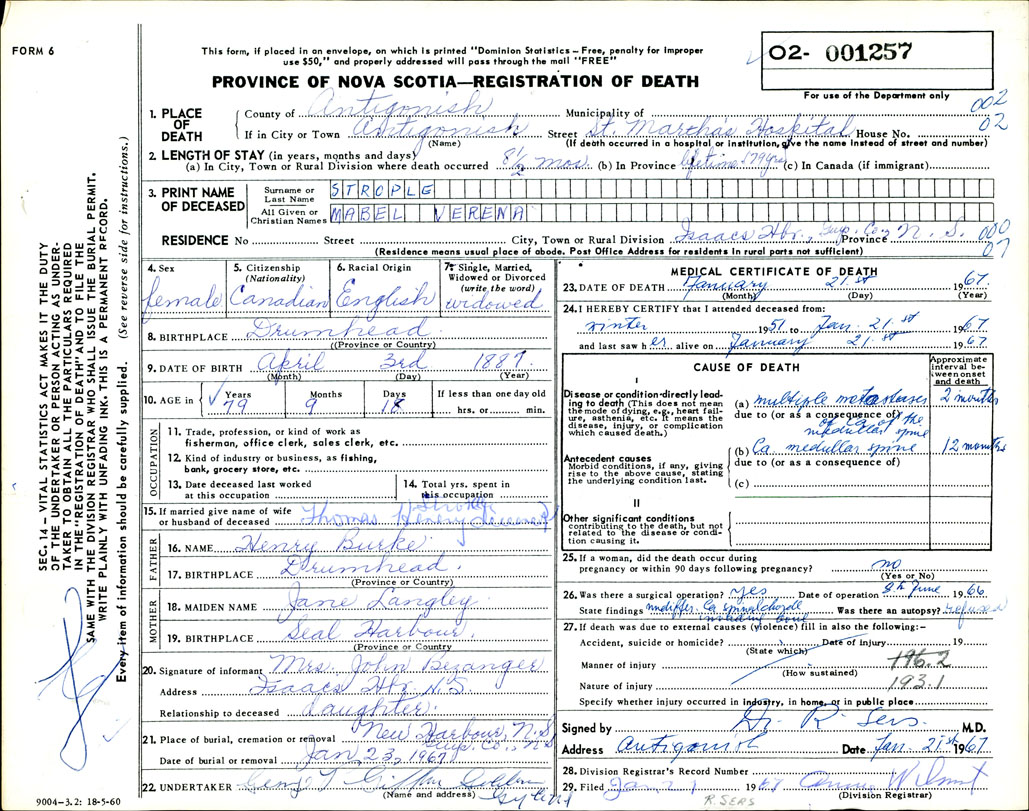 FORM 6
This form, if placed in an envelope, on which is printed "Dominion Statistics – Free, penalty for improper
use $50," and properly addressed will pass through the mail "FREE"
PROVINCE OF NOVA SCOTIA—REGISTRATION OF DEATH
02- 001257
For use of the Department only
002
02
1. PLACE OF DEATH
County of Antigonish Municipality of
If in City or Town Antigonish Street St. Martha's Hospital House No.
(Name) (If death occurred in a hospital or institution, give the name instead of street and number)
2. LENGTH OF STAY (in years, months and days)
(a) In City, Town or Rural Division where death occurred 8½ mos. (b) In Province lifetime 79 yrs (c) In Canada (if immigrant)
3. PRINT NAME OF DECEASED
Surname or Last Name STROPLE
All Given or Christian Names MABEL VERENA
RESIDENCE No Street City, Town or Rural Division Isaacs Hbr., Guy. Co., Province N. S.
000
07
(Residence means usual place of abode. Post Office Address for residents in rural parts not sufficient)
4. Sex female
5. Citizenship (Nationality) Canadian
6. Racial Origin English
7. Single, Married, Widowed or Divorced (write the word) widowed
8. BIRTHPLACE Drumhead
(Province or Country)
9. DATE OF BIRTH April 3rd 1887.
(Month) (Day) (Year)
10. AGE in Years 79 Months 9 Days 18 If less than one day old hrs. or min.
OCCUPATION
11. Trade, profession, or kind of work as fisherman, office clerk, sales clerk, etc.
12. Kind of industry or business, as fishing, bank, grocery store, etc.
13. Date deceased last worked at this occupation
14. Total yrs. spent in this occupation
15. If married give name of wife or husband of deceased Thomas Henry Strople
FATHER
16. NAME Henry Burke
17. BIRTHPLACE Drumhead.
(Province or Country)
MOTHER
18. MAIDEN NAME Jane Langley
19. BIRTHPLACE Seal Harbour.
(Province or Country)
20. Signature of informant Mrs. John Bezanger
Address Isaacs Hbr. N.S.
Relationship to deceased daughter.
21. Place of burial, cremation or removal New Harbour, N.S
Guy. Co., N.S
Date of burial or removal Jan 23, 1967
22. UNDERTAKER
(Name and address)
9004–3.2: 18-5-60
MEDICAL CERTIFICATE OF DEATH
23. DATE OF DEATH January 21st 1967.
(Month) (Day) (Year)
24. I HEREBY CERTIFY that I attended deceased from:
winter 1951 to Jan. 21.st 1967.
and last saw her alive on January 21.st 1967.
CAUSE OF DEATH
Approximate interval between onset and death
I
Disease or condition directly leading to death (This does not mean the mode of dying, e.g., heart failure, asthenia, etc. It means the disease, injury, or complication which caused death.)
(a) multiple metastases 2 months
due to (or as a consequence of)
of Ca of the
medullar spine
Antecedent causes
Morbid conditions, if any, giving rise to the above cause, stating the underlying condition last.
(b) Ca medullar spine 12 months
due to (or as a consequence of)
(c)
II
Other significant conditions contributing to the death, but not related to the disease or condition causing it.
25. If a woman, did the death occur during pregnancy or within 90 days following pregnancy? no
(Yes or No)
26. Was there a surgical operation? yes Date of operation 8th June 1966
State findings undiffer. Ca spinalchorde Was there an autopsy? refused
including bone
27. If death was due to external causes (violence) fill in also the following:–
Accident, suicide or homicide? Date of injury 19
(State which)
Manner of injury 196.2
(How sustained)
Nature of injury 193.1
Specify whether injury occurred in industry, in home, or in public place
Signed by Dr. R. Sers. M.D.
Address Antigonish Date Jan. 21st 1967
28. Division Registrar's Record Number
29. Filed Jan 21 1967
(Division Registrar)
R. SERS
SEC. 14 – VITAL STATISTICS ACT MAKES IT THE DUTY
OF THE UNDERTAKER OR PERSON ACTING AS UNDERTAKER TO OBTAIN ALL THE PARTICULARS REQUIRED
IN THE "REGISTRATION OF DEATH" AND TO FILE THE
SAME WITH THE DIVISION REGISTRAR WHO SHALL ISSUE THE BURIAL PERMIT.
WRITE PLAINLY WITH UNFADING INK. THIS IS A PERMANENT RECORD.
Every item of information should be carefully supplied. (See reverse side for instructions.)